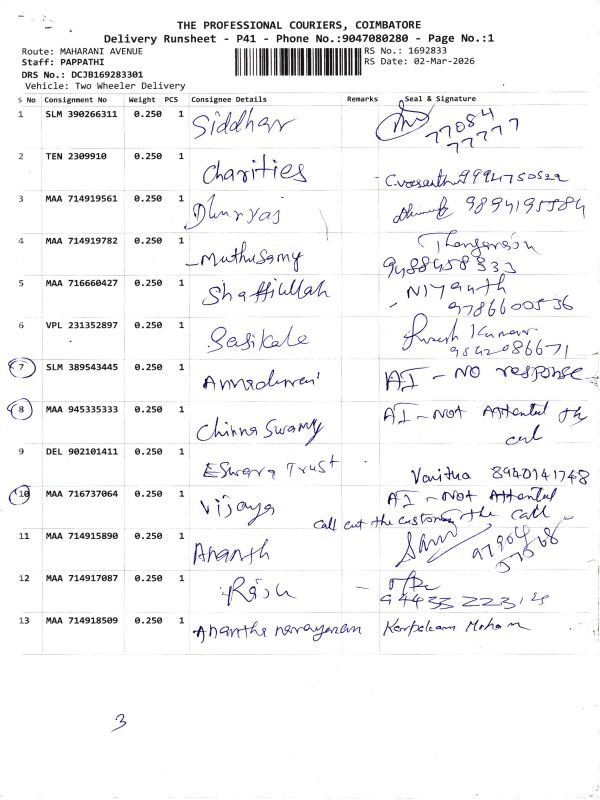 THE PROFESSIONAL COURIERS, COIMBATORE
Delivery Runsheet - P41 - Phone No.:9047080280 - Page No.:1
Route: MAHARANI AVENUE
RS No.: 1692833
Staff: PAPPATHI
RS Date: 02-Mar-2026
DRS No.: DCJB169283301
Vehicle: Two Wheeler Delivery
S No Consignment No Weight PCS Consignee Details Remarks Seal & Signature
1 SLM 390266311 0.250 1 Siddharr 77084
77777
2 TEN 2309910 0.250 1 Charities C.vasantha 9994750522
3 MAA 714919561 0.250 1 Dhuryai 9894195584
4 MAA 714919782 0.250 1 Muthusamy Thangarasu
9488458333
5 MAA 716660427 0.250 1 Shaffiullah Niyanth
9786600536
6 VPL 231352897 0.250 1 Sasikala Suresh Kumar
9542086671
7 SLM 389543445 0.250 1 Annadurai AI - No response
8 MAA 945335333 0.250 1 Chinna Swamy AI - Not Attented the
call
9 DEL 902101411 0.250 1 Eswara Trust Vanitha 8940141748
10 MAA 716737064 0.250 1 Vijaya AI - Not Attented
call cut the customer the call
11 MAA 714915890 0.250 1 Ananth 97904
57568
12 MAA 714917087 0.250 1 Raju
13 MAA 714918509 0.250 1 Anantha narayanan Karpakam Mohan
3